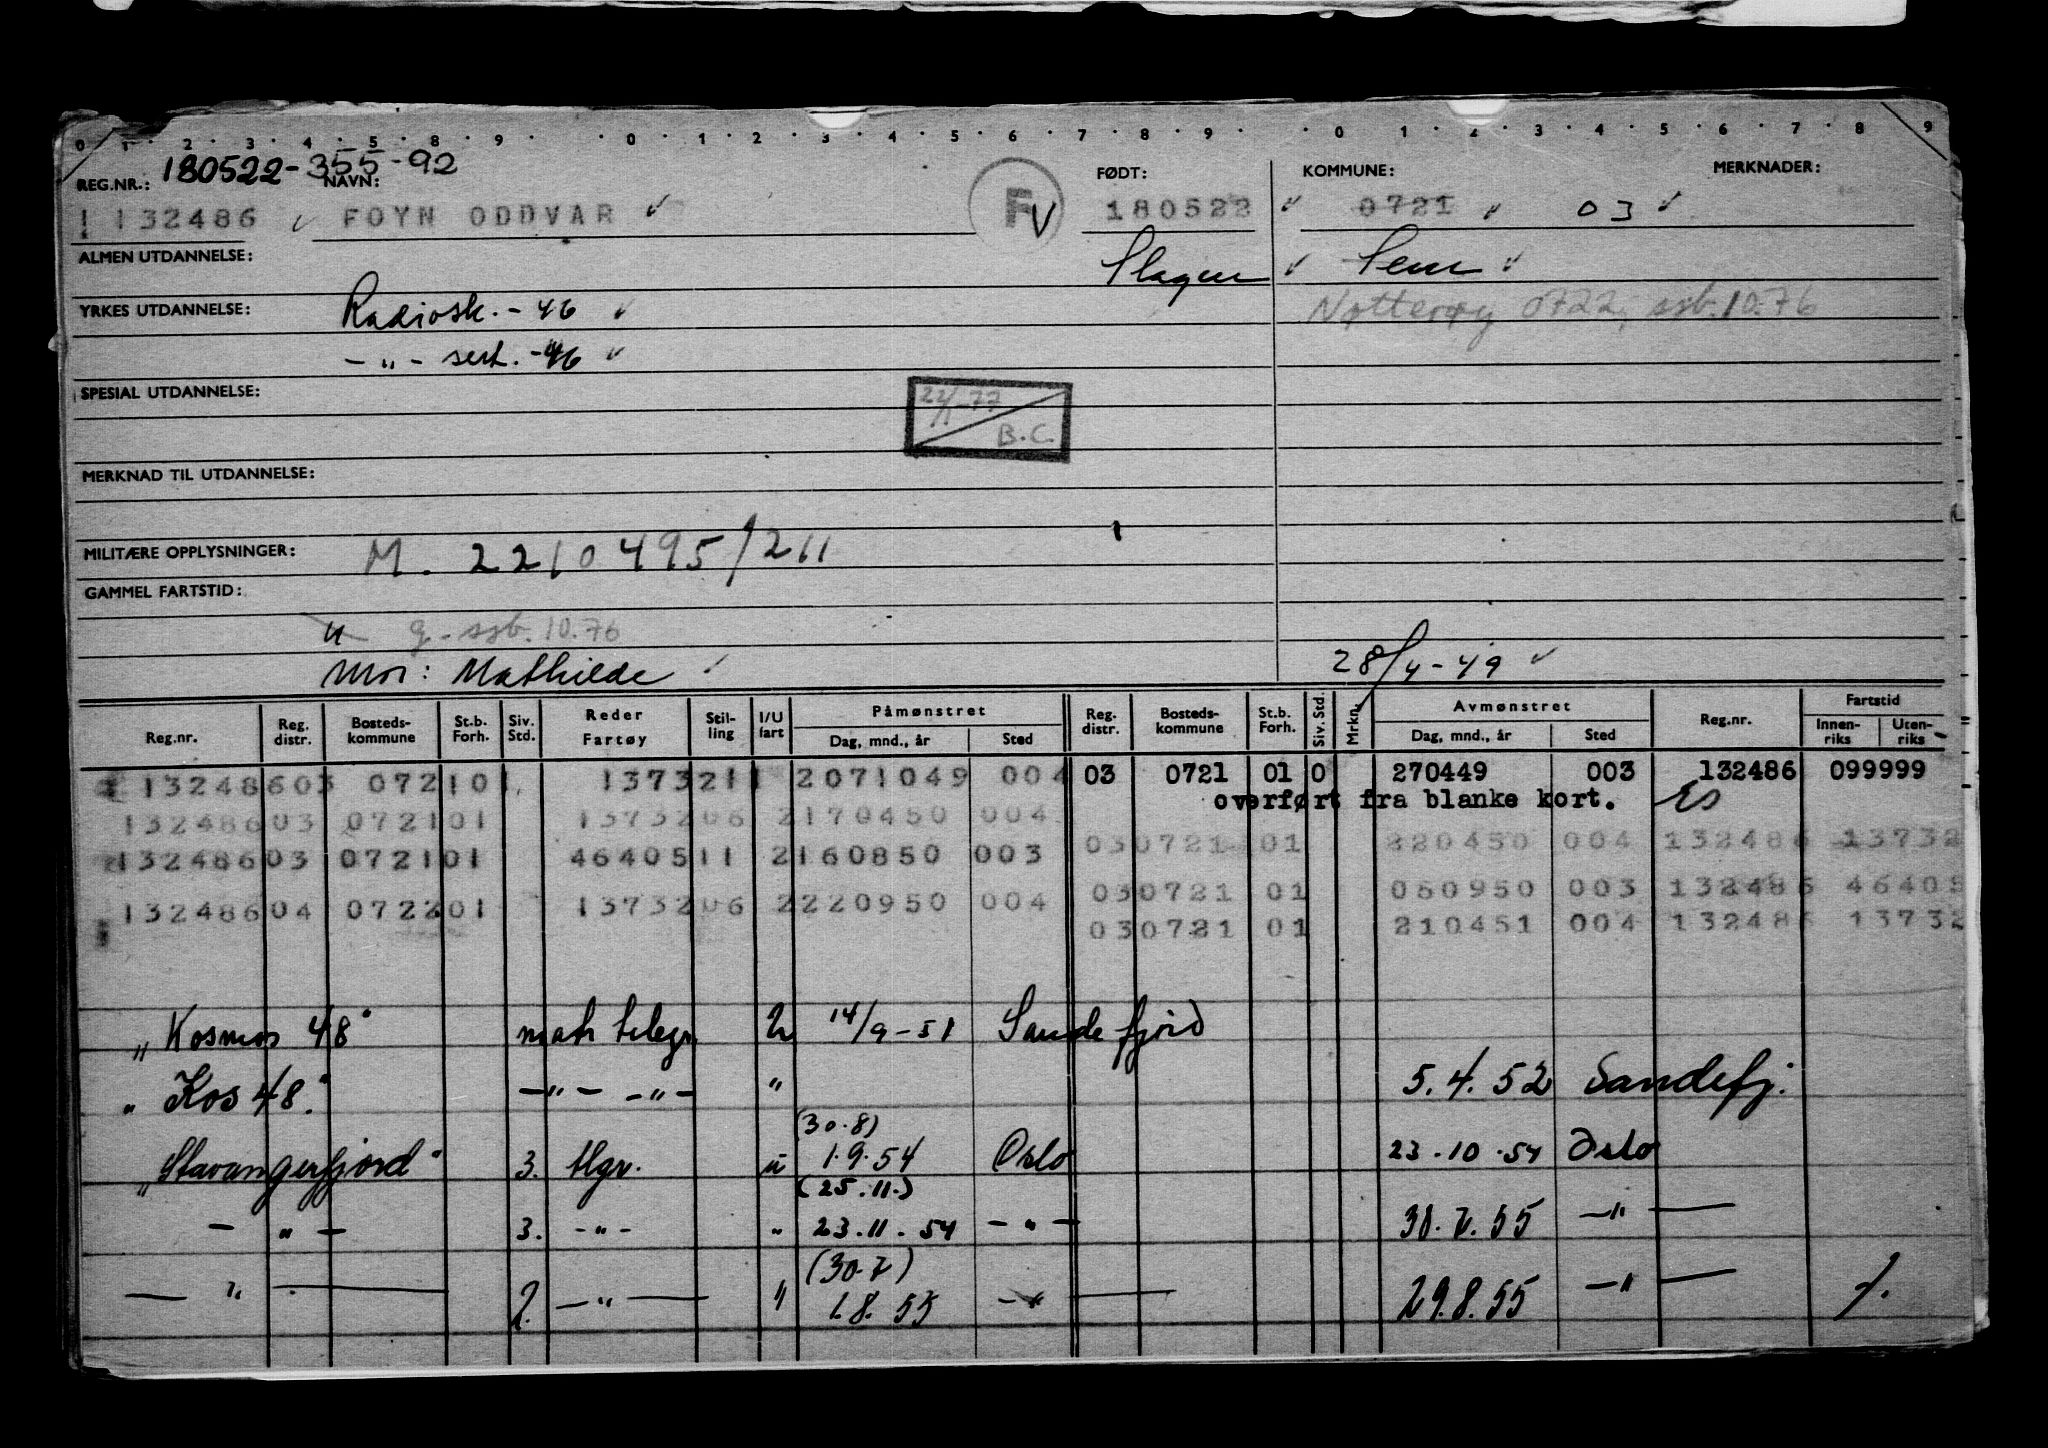 0 1 2 3 4 5 8 9 0 1 2 3 4 5 6 7 8 9 0 1 2 3 4 5 6 7 8 9
180522-355-92
REG.NR.: NAVN: FØDT: KOMMUNE: MERKNADER:
132486 FOYN ODDVAR F 180522 0721 03
ALMEN UTDANNELSE: Slagen Sem
YRKES UTDANNELSE: Radiosk. - 46 Nøtterøy 0722, ssb. 10.76
- " - sert. - 46
SPESIAL UTDANNELSE:
22/11-77
B.C.
MERKNAD TIL UTDANNELSE:
MILITÆRE OPPLYSNINGER: M. 2210495/211
GAMMEL FARTSTID:
u g - ssb. 10.76
Mor: Mathilde 28/4-49
Reg.nr. Reg. distr. Bosteds-kommune St.b. Forh. Siv. Std. Reder Fartøy Stil-ling I/U fart Påmønstret Dag, mnd., år Sted Reg. distr. Bosteds-kommune St.b. Forh. Siv. Std. Mrkn. Avmønstret Dag, mnd., år Sted Reg.nr. Fartstid Innen-riks Uten-riks
132486 03 0721 01 13732 11 2071049 004 03 0721 01 0 270449 003 132486 099999
overført fra blanke kort.
132486 03 0721 01 13732 06 2170450 004
030721 01 220450 004 132486 13732
132486 03 0721 01 46405 11 2160850 003
030721 01 050950 003 132486 46405
132486 04 0722 01 13732 06 2220950 004
030721 01 210451 004 132486 13732
"Kosmos 48" matr telegr u 14/9-51 Sandefjord
"Kos 48." - " - - " - " 5.4.52 Sandefj.
(30.8)
"Stavangerfjord" 3. tlgr. u 1.9.54 Oslo 23.10.54 Oslo
(25.11.)
- " - 3. - " - " 23.11.54 - " - 30.7.55 - " -
(30.7)
- " - 2. - " - " 1.8.55 - " - 29.8.55 - " -